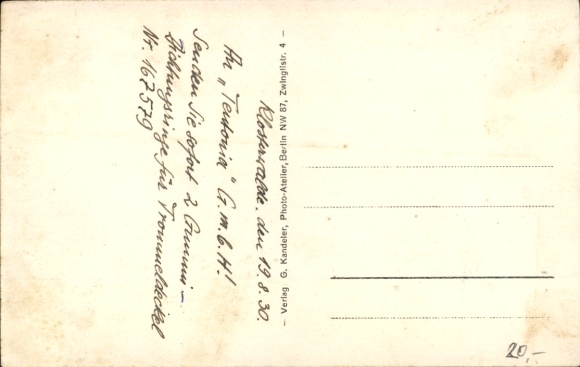 Klosterwalde, den 19.8.30.
An „Teutonia" G.m.b.H!
Senden Sie sofort 2 Gummi-
Dichtungsringe für Trommeldeckel
Nr. 167579
– Verlag G. Kandeler, Photo-Atelier, Berlin NW 87, Zwinglistr. 4 –
20,-